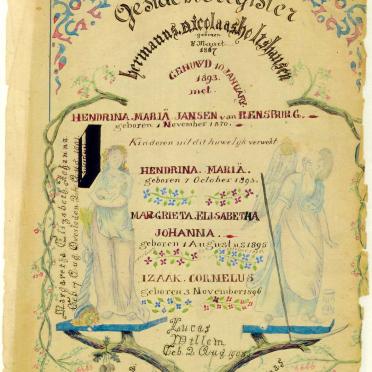 Geslachtregister
hermanus. nicolaas. holtshausen
geboren
8 Maart
1867
GEHUWD 10 JANUARY
1893.
met.
HENDRINA. MARIÄ JANSEN van RENSBURG.
geboren 1 November 1870.
Kinderen uit dit huwelyk verwekt
HENDRINA. MARIÄ.
geboren 7 October 1893.
MARGRIETA. ELISABETHA
JOHANNA.
geboren 1 Augustus 1895
IZAAK. CORNELUS
geboren 3 November 1896
Lucas
Willem
Geb. 2 Aug 1905
Margaretha Elizabeth Johanna
Geb 7 Aug Overleden 26 Aug 1901